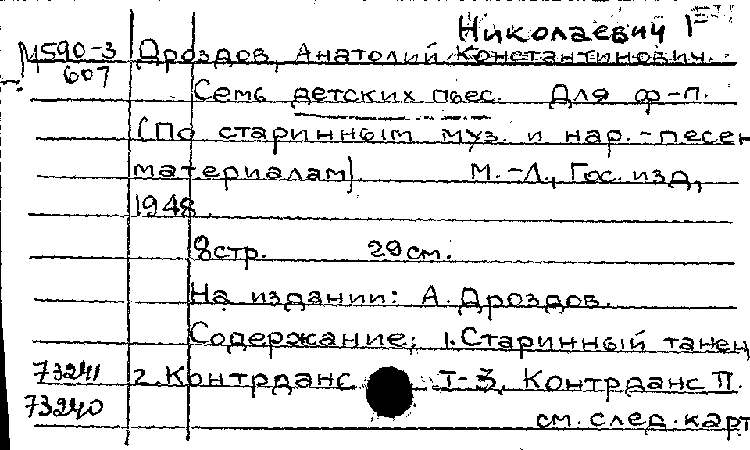 Николаевич
М590-3 Дроздов, Анатолий Константинович.
607
Семь детских пьес. Для ф-п.
(По старинным муз. и нар.-песен
материалам). М.-Л., Гос. изд,
1948.
8стр. 29см.
На издании: А. Дроздов.
Содержание: 1. Старинный танец
73241 2. Контрданс I-3. Контрданс II.
73240 см. след. карт